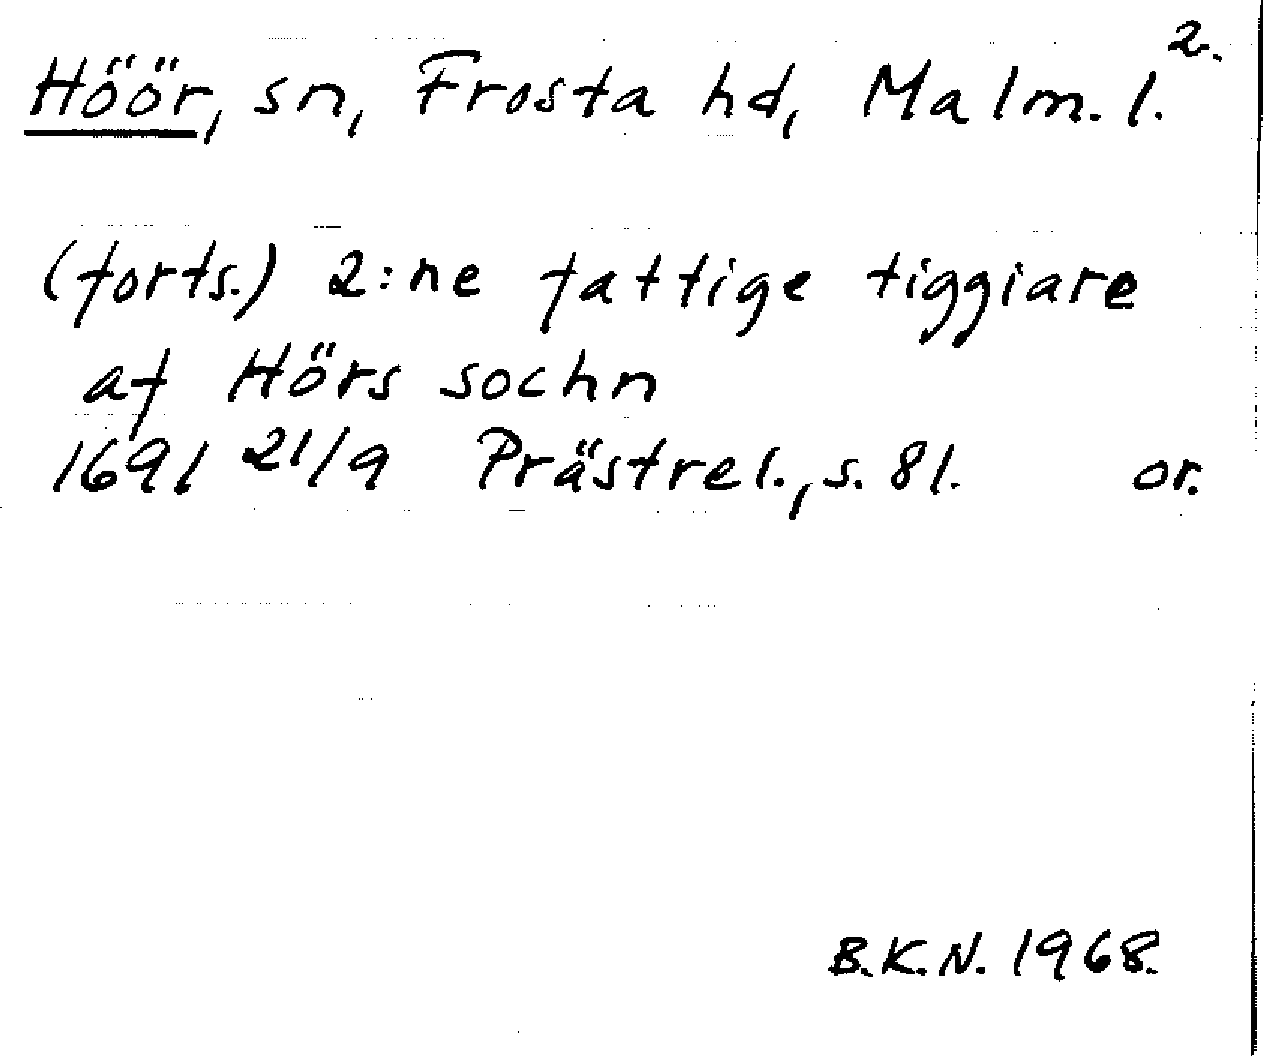 Höör, sn, Frosta hd, Malm. l. 2.
(forts.) 2:ne fattige tiggiare
af Hörs sochn
1691 21/9 Prästrel., s. 81. or.
B.K.N. 1968.